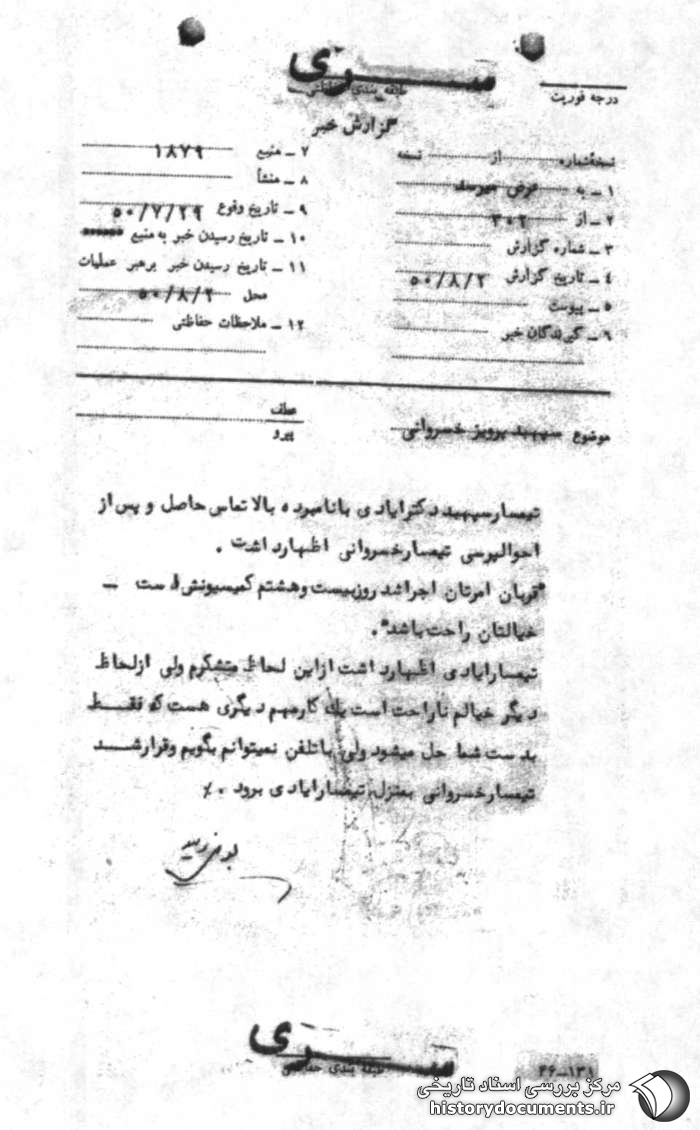 سری
طبقه بندی حفاظتی
درجه فوریت
گزارش خبر
نسخه‌شماره از نسخه
۱ ـ به عرض میرسد
۲ ـ از ۳۰۲
۳ ـ شماره گزارش
۴ ـ تاریخ گزارش ۵۰/۸/۲
۵ ـ پیوست
۶ ـ گیرندگان خبر
۷ ـ منبع ۱۸۷۹
۸ ـ منشأ
۹ ـ تاریخ وقوع ۵۰/۷/۲۹
۱۰ ـ تاریخ رسیدن خبر به منبع
۱۱ ـ تاریخ رسیدن خبر برهبر عملیات
محل ۵۰/۸/۲
۱۲ ـ ملاحظات حفاظتی
موضوع سپهبد پرویز خسروانی
عطف
پیرو
تیمسار سپهبد دکتر ایادی با نامبرده بالا تماس حاصل و پس از
احوالپرسی تیمسار خسروانی اظهار داشت .
"قربان امرتان اجرا شد روز بیست و هشتم کمیسیونش است ـ
خیالتان راحت باشد".
تیمسار ایادی اظهار داشت از این لحاظ متشکرم ولی از لحاظ
دیگر خیالم ناراحت است یك کار مهم دیگری هست که فقط
بدست شما حل میشود ولی با تلفن نمیتوانم بگویم و قرار شد
تیمسار خسروانی بمنزل تیمسار ایادی برود . ٪
سری
طبقه بندی حفاظتی
مرکز بررسی اسناد تاریخی
historydocuments.ir